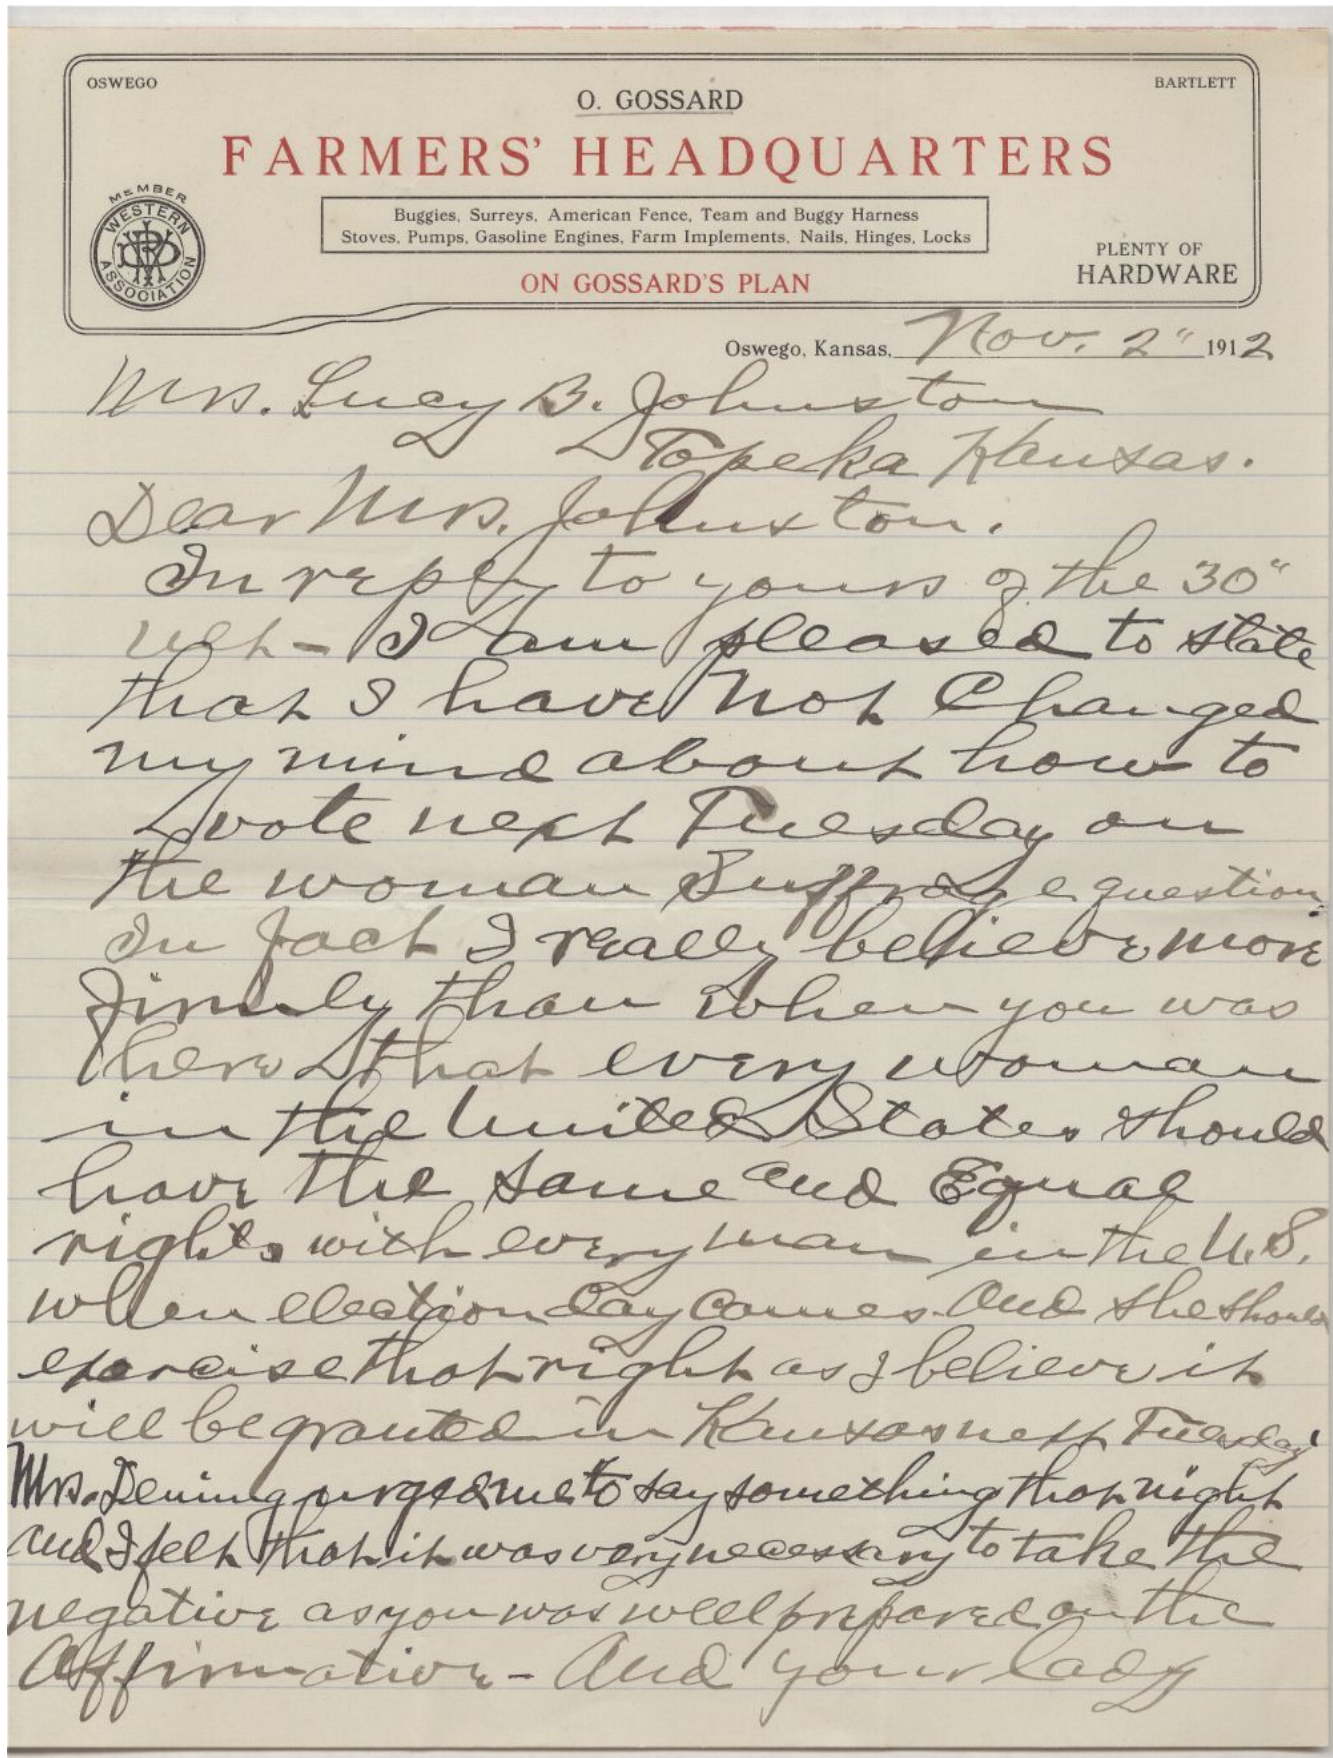 OSWEGO
BARTLETT
O. GOSSARD
FARMERS' HEADQUARTERS
MEMBER
WESTERN
ASSOCIATION
Buggies, Surreys, American Fence, Team and Buggy Harness
Stoves, Pumps, Gasoline Engines, Farm Implements, Nails, Hinges, Locks
PLENTY OF
HARDWARE
ON GOSSARD'S PLAN
Oswego, Kansas, Nov. 2" 1912
Mrs. Lucy B. Johnston
Topeka Kansas.
Dear Mrs. Johnston.
In reply to yours of the 30"
ult - I am pleased to state
that I have not Changed
my mind about how to
vote next Tuesday on
the woman Suffrage question.
In fact I really believe more
firmly than when you was
here that every woman
in the United States should
have the same and Equal
rights with every man in the U.S.
when election day comes. And she should
exercise that right as I believe it
will be granted in Kansas next Tuesday
Mrs. Deming urged me to say something that night
and I felt that it was very necessary to take the
negative as you was well prepared on the
Affirmative - And your lady